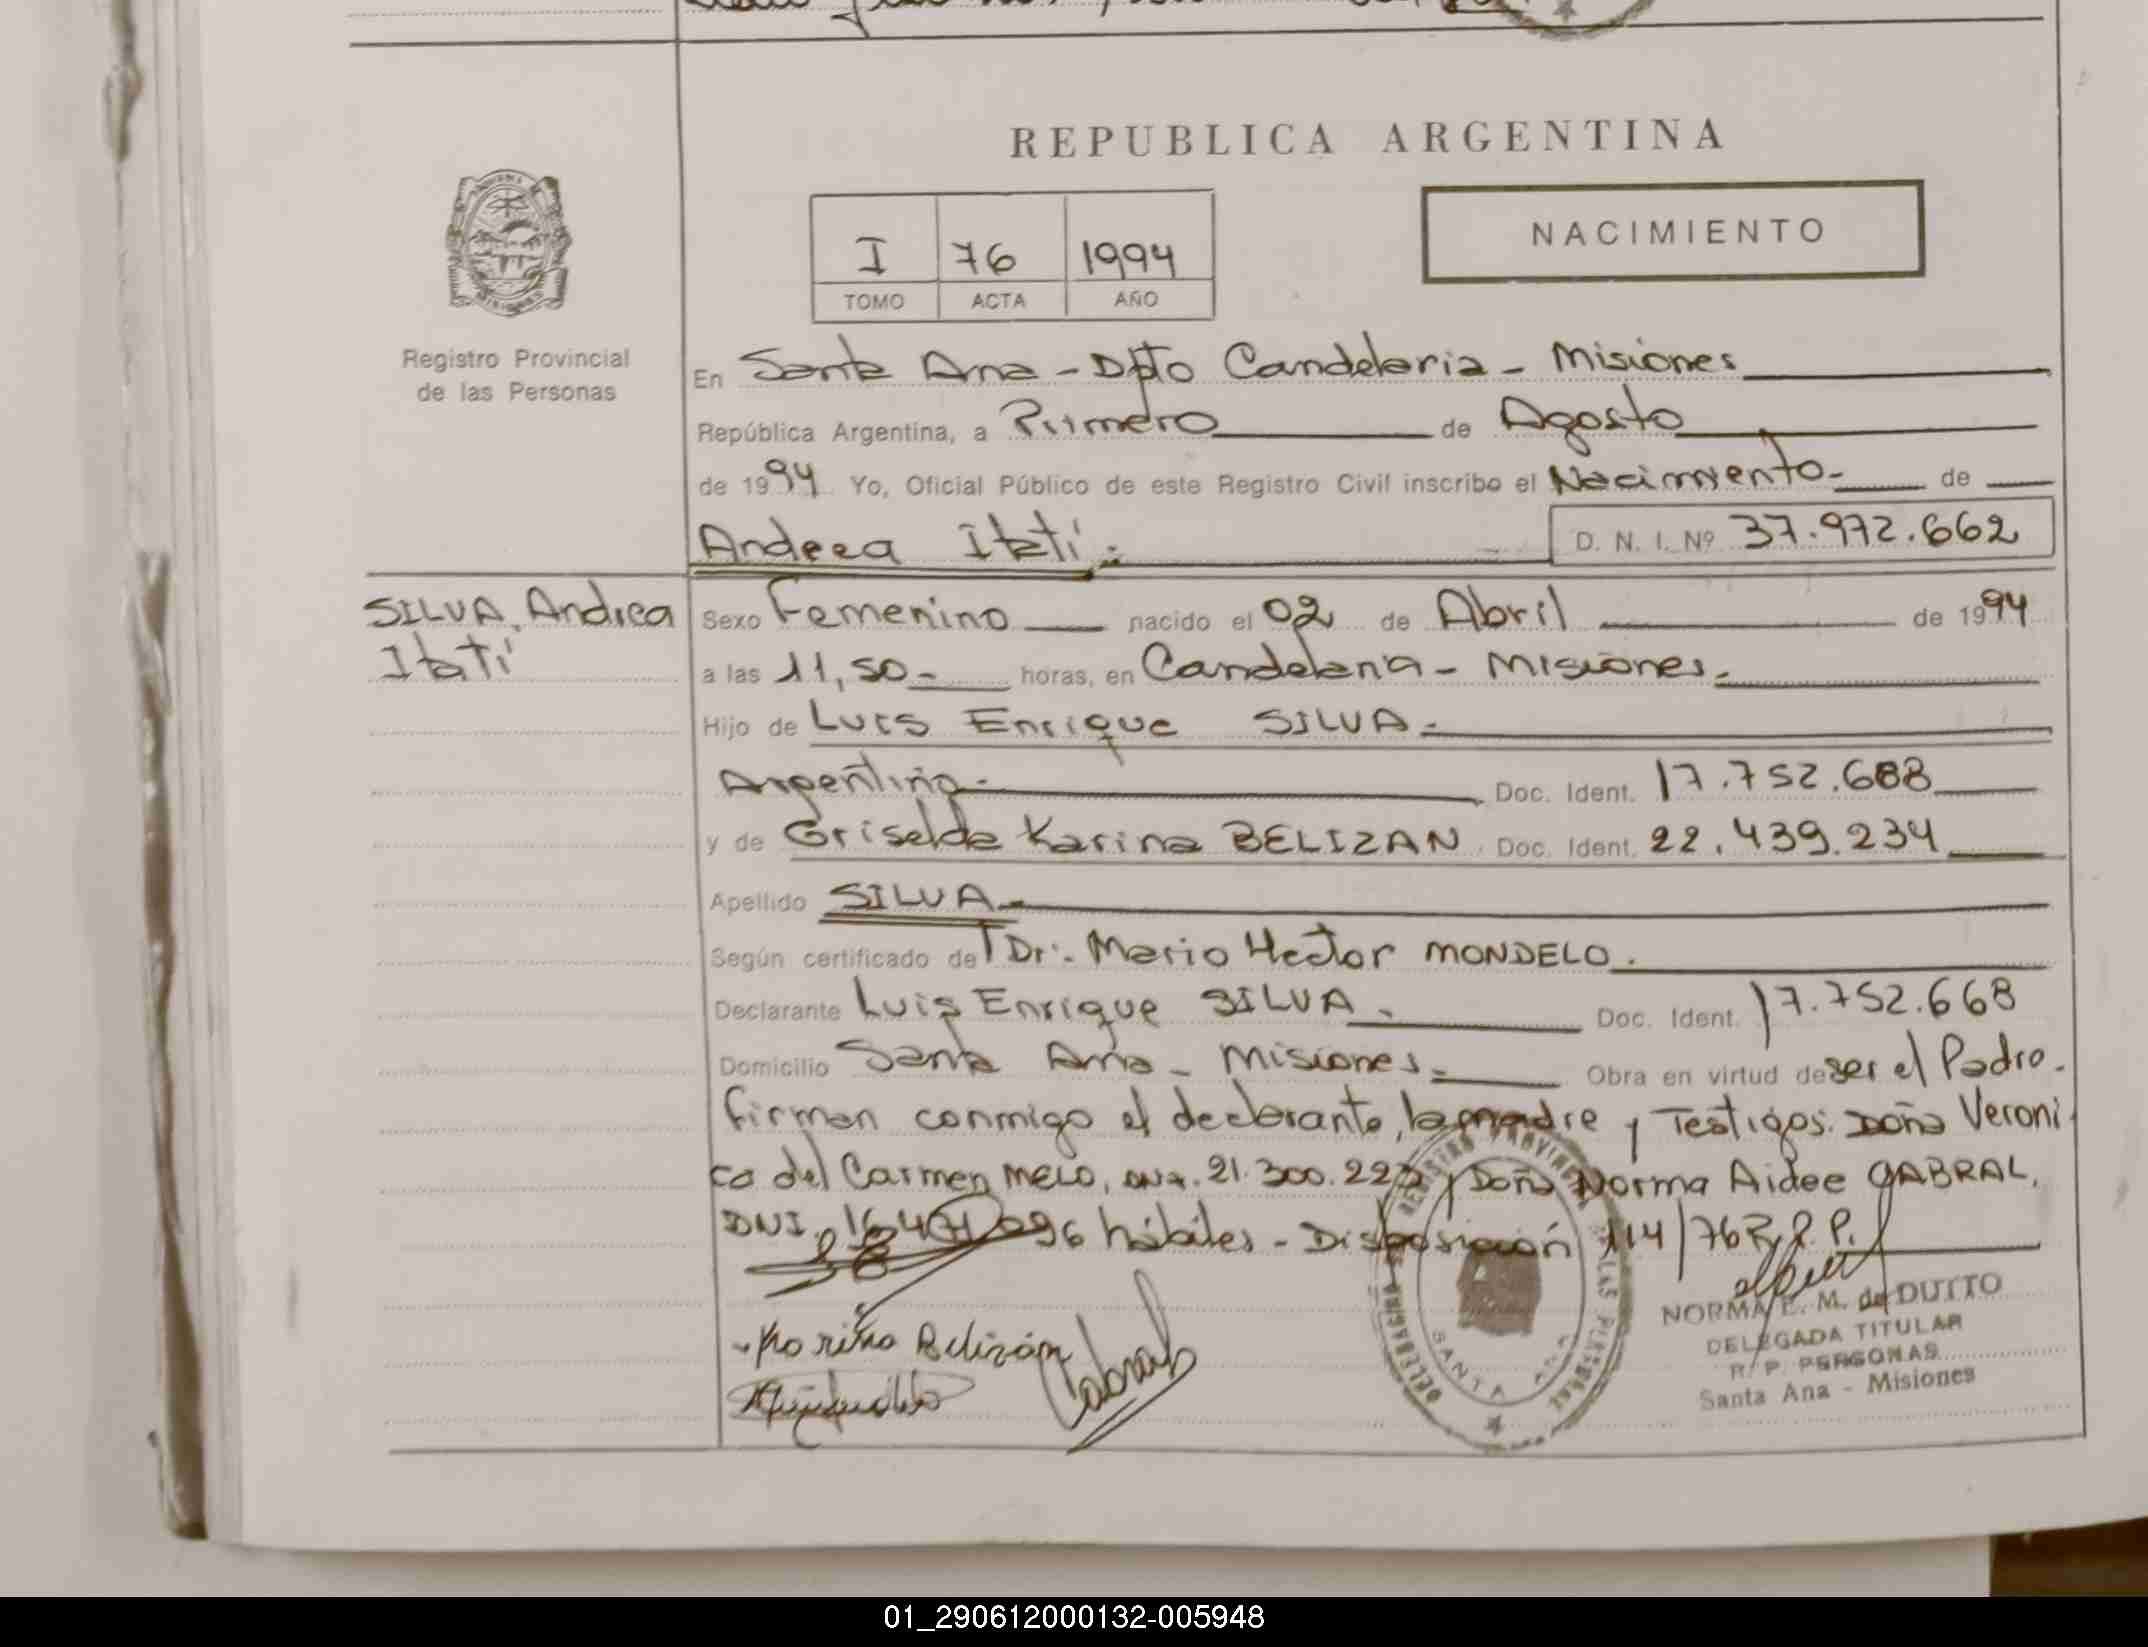 REPUBLICA ARGENTINA
I 76 1994
TOMO ACTA AÑO
NACIMIENTO
Registro Provincial
de las Personas
En Santa Ana - Dpto Candelaria - Misiones
República Argentina, a Primero de Agosto
de 1994 Yo, Oficial Público de este Registro Civil inscribo el Nacimiento- de
Andrea Itatí.- D. N. I. Nº 37.972.662
SILVA, Andrea
Itatí
Sexo Femenino nacido el 02 de Abril de 1994
a las 11,50- horas, en Candelaria - Misiones.-
Hijo de Luis Enrique SILVA.-
Argentino.- Doc. Ident. 17.752.668
y de Griselda Karina BELIZAN Doc. Ident. 22.439.234
Apellido SILVA.-
Según certificado del Dr.- Mario Hector MONDELO.
Declarante Luis Enrique SILVA.- Doc. Ident. 17.752.668
Domicilio Santa Ana - Misiones.- Obra en virtud de ser el Padre.
firman conmigo el declarante, la madre y Testigos: Doña Veroni
ca del Carmen MELO, DNI. 21.300.222 y Doña Norma Aidee CABRAL,
DNI. 16.471.096 hábiles - Disposición 114/76 R.P.P.
Karina Belizán
Cabral
DELEGACION SANTA ANA
REGISTRO PROVINCIAL DE LAS PERSONAS
NORMA E. M. de DUTTO
DELEGADA TITULAR
R. P. PERSONAS
Santa Ana - Misiones
01_290612000132-005948